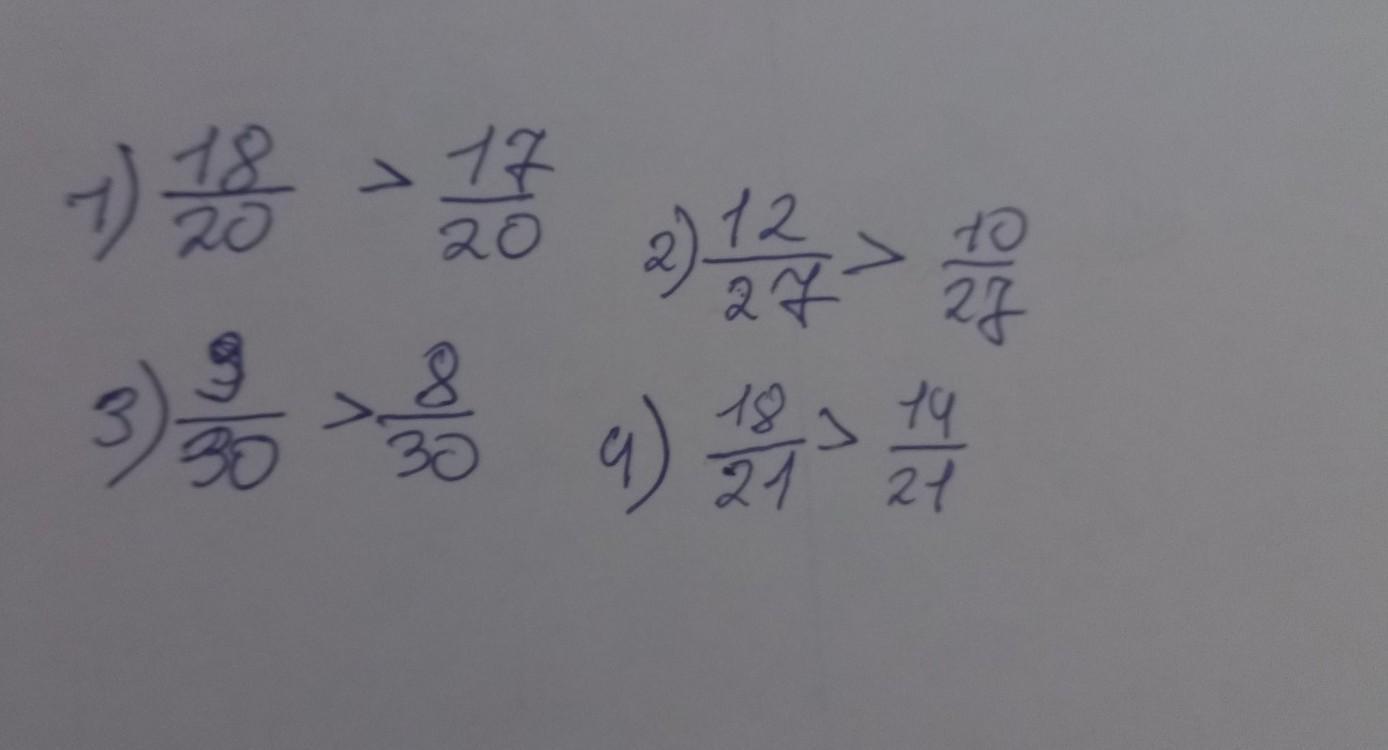 1) 18/20 > 17/20
2) 12/27 > 10/27
3) 9/30 > 8/30
4) 18/21 > 14/21